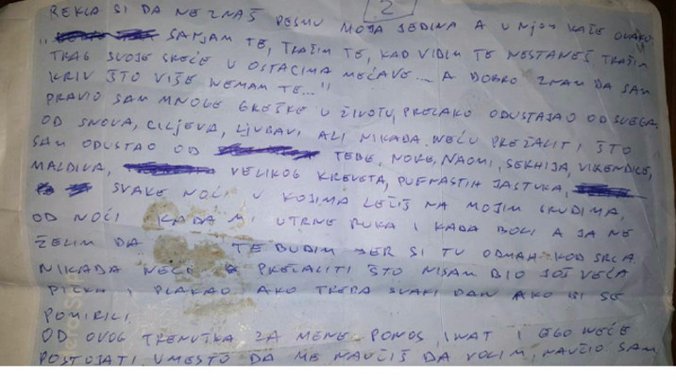 2
REKLA SI DA NE ZNAŠ PESMU MOJA JEDINA A U NJOJ KAŽE OVAKO
" SANJAM TE, TRAŽIM TE, KAD VIDIM TE NESTANEŠ TRAŽIM
TRAG SVOJE SREĆE U OSTACIMA MEĆAVE... A DOBRO ZNAM DA SAM
KRIV ŠTO VIŠE NEMAM TE..."
PRAVIO SAM MNOGE GREŠKE U ŽIVOTU, PRELAKO ODUSTAJAO OD SVEGA
OD SNOVA, CILJEVA, LJUBAVI ALI NIKADA NEĆU PREŽALITI ŠTO
SAM ODUSTAO OD TEBE, NOVE, NAOMI, SEKHIJA, VIKENDICE,
MALDIVA, VELIKOG KREVETA, PUFNASTIH JASTUKA,
SVAKE NOĆI U KOJIMA LEŽIŠ NA MOJIM GRUDIMA,
OD NOĆI KADA MI UTRNE RUKA I KADA BOLI A JA NE
ŽELIM DA TE BUDIM JER SI TU ODMAH KOD SRCA
NIKADA NEĆU PREŽALITI ŠTO NISAM BIO JOŠ VEĆA
PIČKA I PLAKAO AKO TREBA SVAKI DAN AKO BI SE
POMIRILI
OD OVOG TRENUTKA ZA MENE PONOS, INAT I EGO NEĆE
POSTOJATI, UMESTO DA ME NAUČIŠ DA VOLIM, NAUČIO SAM